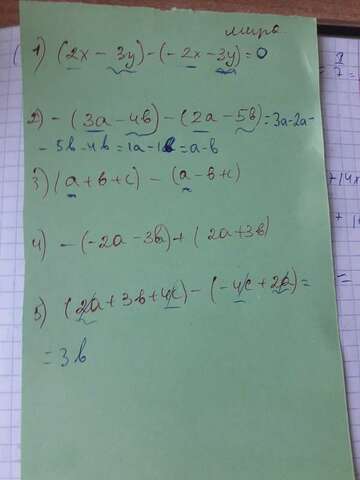 мира
1) (2x - 3y) - (-2x - 3y) = 0
2) - (3a - 4b) - (2a - 5b) = 3a - 2a -
- 5b - 4b = 1a - 1b = a - b
3) (a + b + c) - (a - b + c)
4) - (-2a - 3b) + (2a + 3b)
5) (2a + 3b + 4c) - (-4c + 2a) =
= 3b